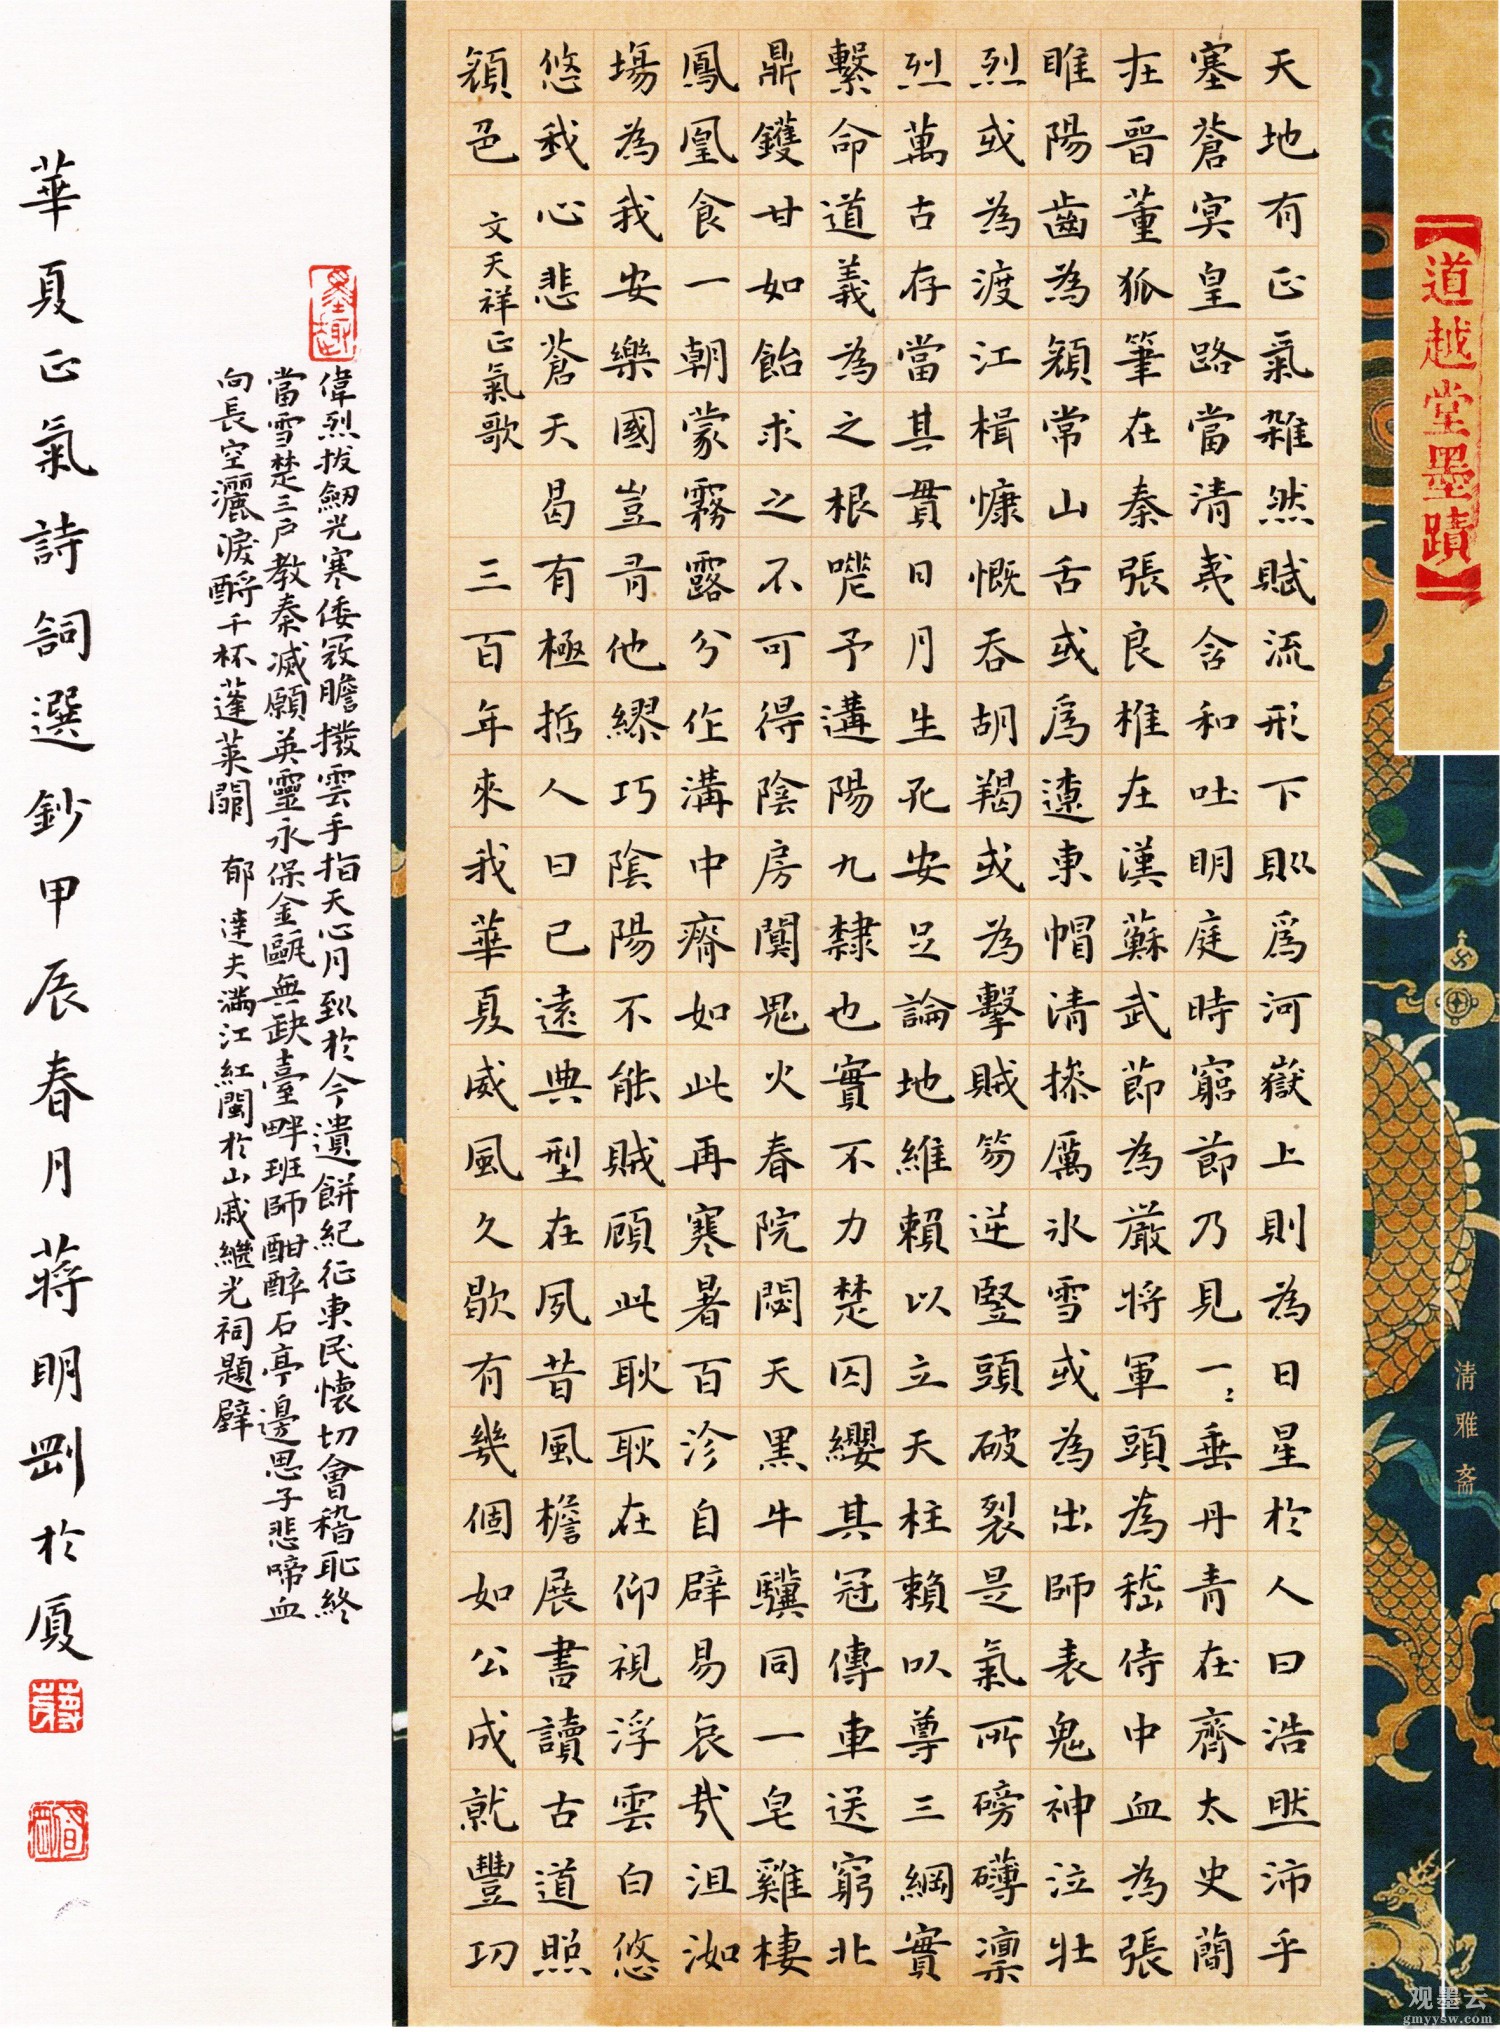 【道越堂墨蹟】
清雅斋
天地有正氣雜然賦流形下則爲河嶽上則為日星於人曰浩然沛乎
塞蒼冥皇路當清夷含和吐明庭時窮節乃見一〻垂丹青在齊太史簡
在晉董狐筆在秦張良椎在漢蘇武節為嚴將軍頭為嵇侍中血為張
睢陽齒為顏常山舌或爲遼東帽清操厲冰雪或為出師表鬼神泣壯
烈或為渡江楫慷慨吞胡羯或為擊賊笏逆豎頭破裂是氣所磅礴凜
烈萬古存當其貫日月生死安足論地維賴以立天柱賴以尊三綱實
繫命道義為之根嗟予遘陽九隸也實不力楚囚纓其冠傳車送窮北
鼎鑊甘如飴求之不可得陰房闃鬼火春院閟天黑牛驥同一皂雞棲
鳳凰食一朝蒙霧露分作溝中瘠如此再寒暑百沴自辟易哀哉沮洳
場為我安樂國豈有他繆巧陰陽不能賊顧此耿耿在仰視浮雲白悠
悠我心悲蒼天曷有極哲人日已遠典型在夙昔風檐展書讀古道照
顏色 文天祥正氣歌 三百年來我華夏威風久歇有幾個如公成就豐功
墨趣
偉烈拔劍光寒倭寇膽撥雲手指天心月到於今遺餅紀征東民懷切會稽恥終
當雪楚三戶教秦滅願英靈永保金甌無缺臺畔班師酣醉石亭邊思子悲啼血
向長空灑淚酹千杯蓬萊闕 郁達夫滿江紅閩於山戚繼光祠題壁
華夏正氣詩詞選鈔甲辰春月蔣明剛於厦
观墨云
gmyysw.com